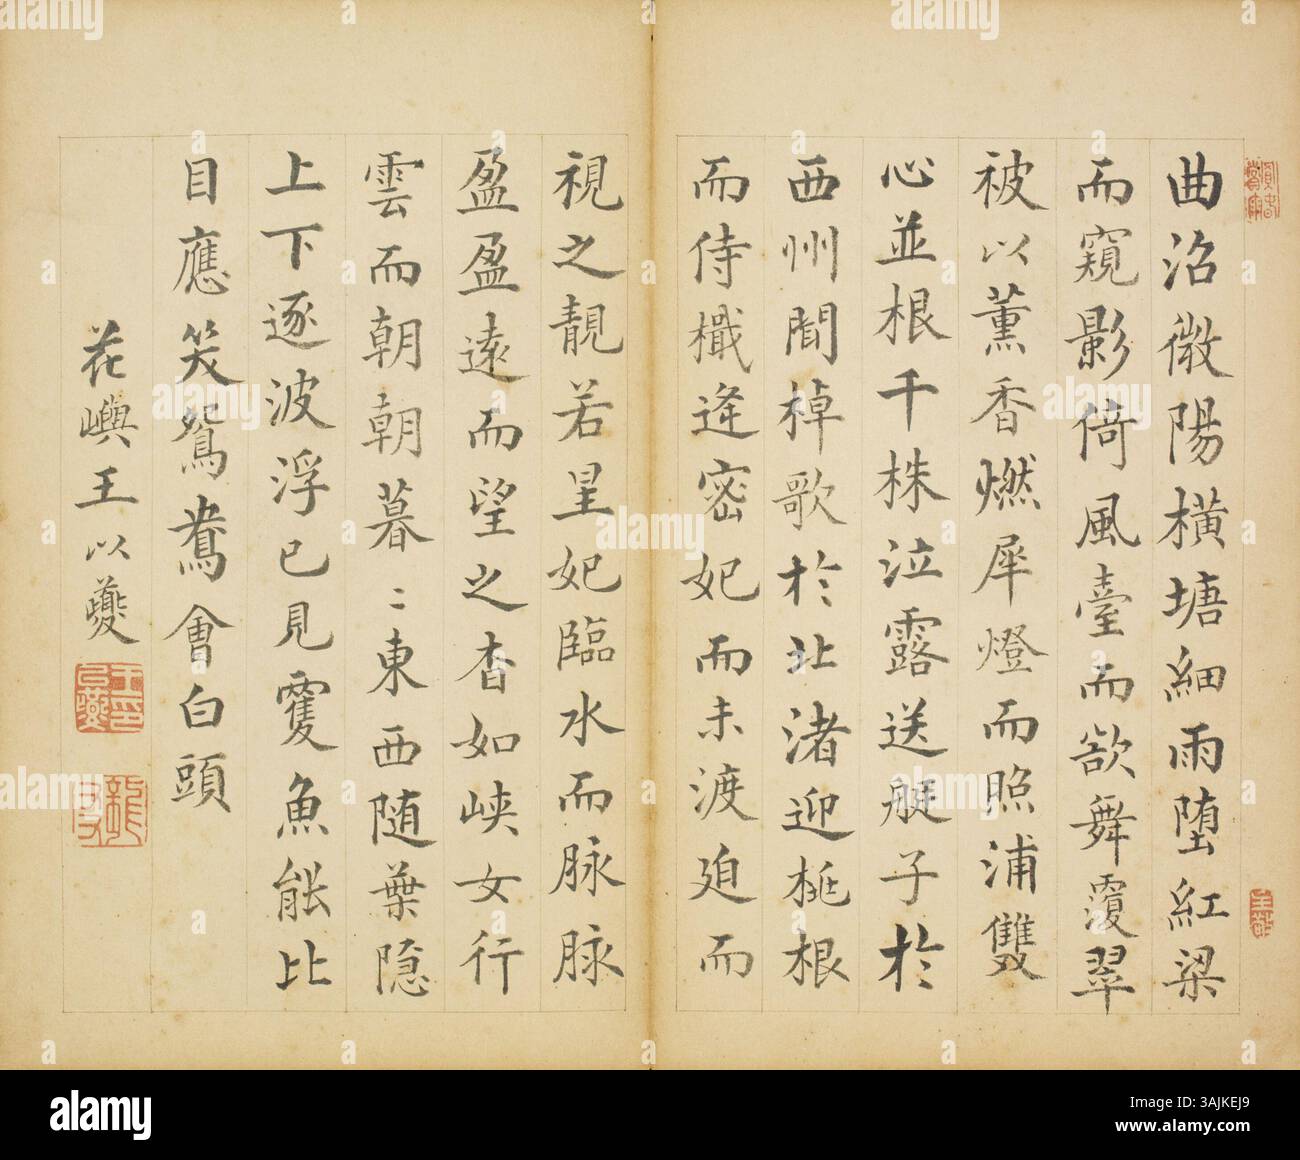 曲沼微陽橫塘細雨墮紅梁
而窺影倚風臺而欲舞覆翠
被以薰香燃犀燈而照浦雙
心並根千株泣露送艇子於
西州間棹歌於北渚迎桃根
而待檝逢密妃而未渡迫而
視之靚若星妃臨水而脉脉
盈盈遠而望之杳如峽女行
雲而朝朝暮〻東西隨葉隱
上下逐波浮已見雙魚能比
目應笑鴛鴦會白頭
花嶼王以夔
alamy
Image ID: 3AJKEJ9
www.alamy.com